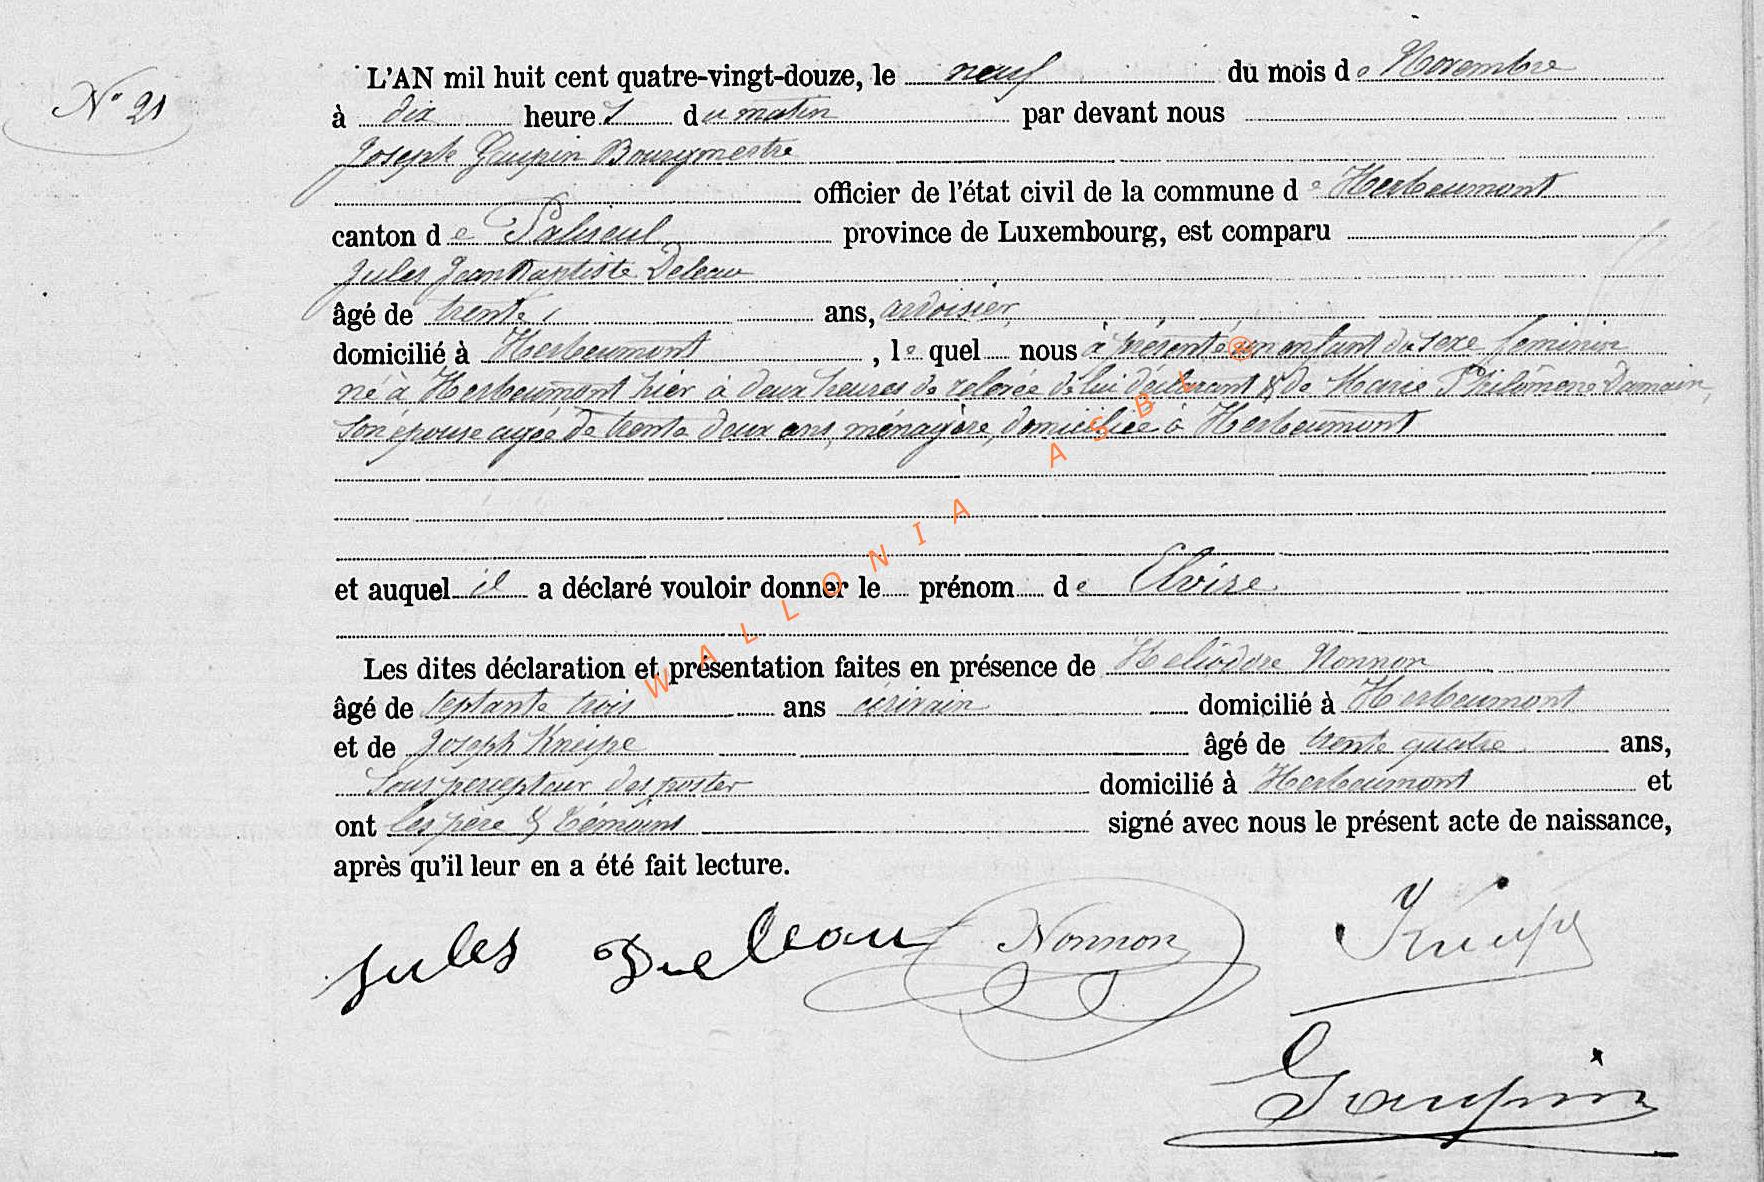 N° 21
L'AN mil huit cent quatre-vingt-douze, le neuf du mois de Novembre
à dix heures du matin par devant nous
Joseph Gaupin Bourgmestre
officier de l'état civil de la commune de Herbeumont
canton de Paliseul province de Luxembourg, est comparu
Jules Jean Baptiste Deleau
âgé de trente ans, ardoisier,
domicilié à Herbeumont, le quel nous à présenté un enfant du sexe féminin
né à Herbeumont hier à deux heures de relevée de lui déclarant & de Marie Philomène Damain,
son épouse agée de trente deux ans, ménagère, domiciliée à Herbeumont
et auquel il a déclaré vouloir donner le prénom de Elvire
Les dites déclaration et présentation faites en présence de Héliodore Nonnon
âgé de septante trois ans écrivain domicilié à Herbeumont
et de Joseph Kneipe âgé de trente quatre ans,
sous percepteur des postes domicilié à Herbeumont et
ont les père & témoins signé avec nous le présent acte de naissance,
après qu'il leur en a été fait lecture.
Jules Deleau Nonnon Kneipe
Gaupin
WALLONIA ASBL ®